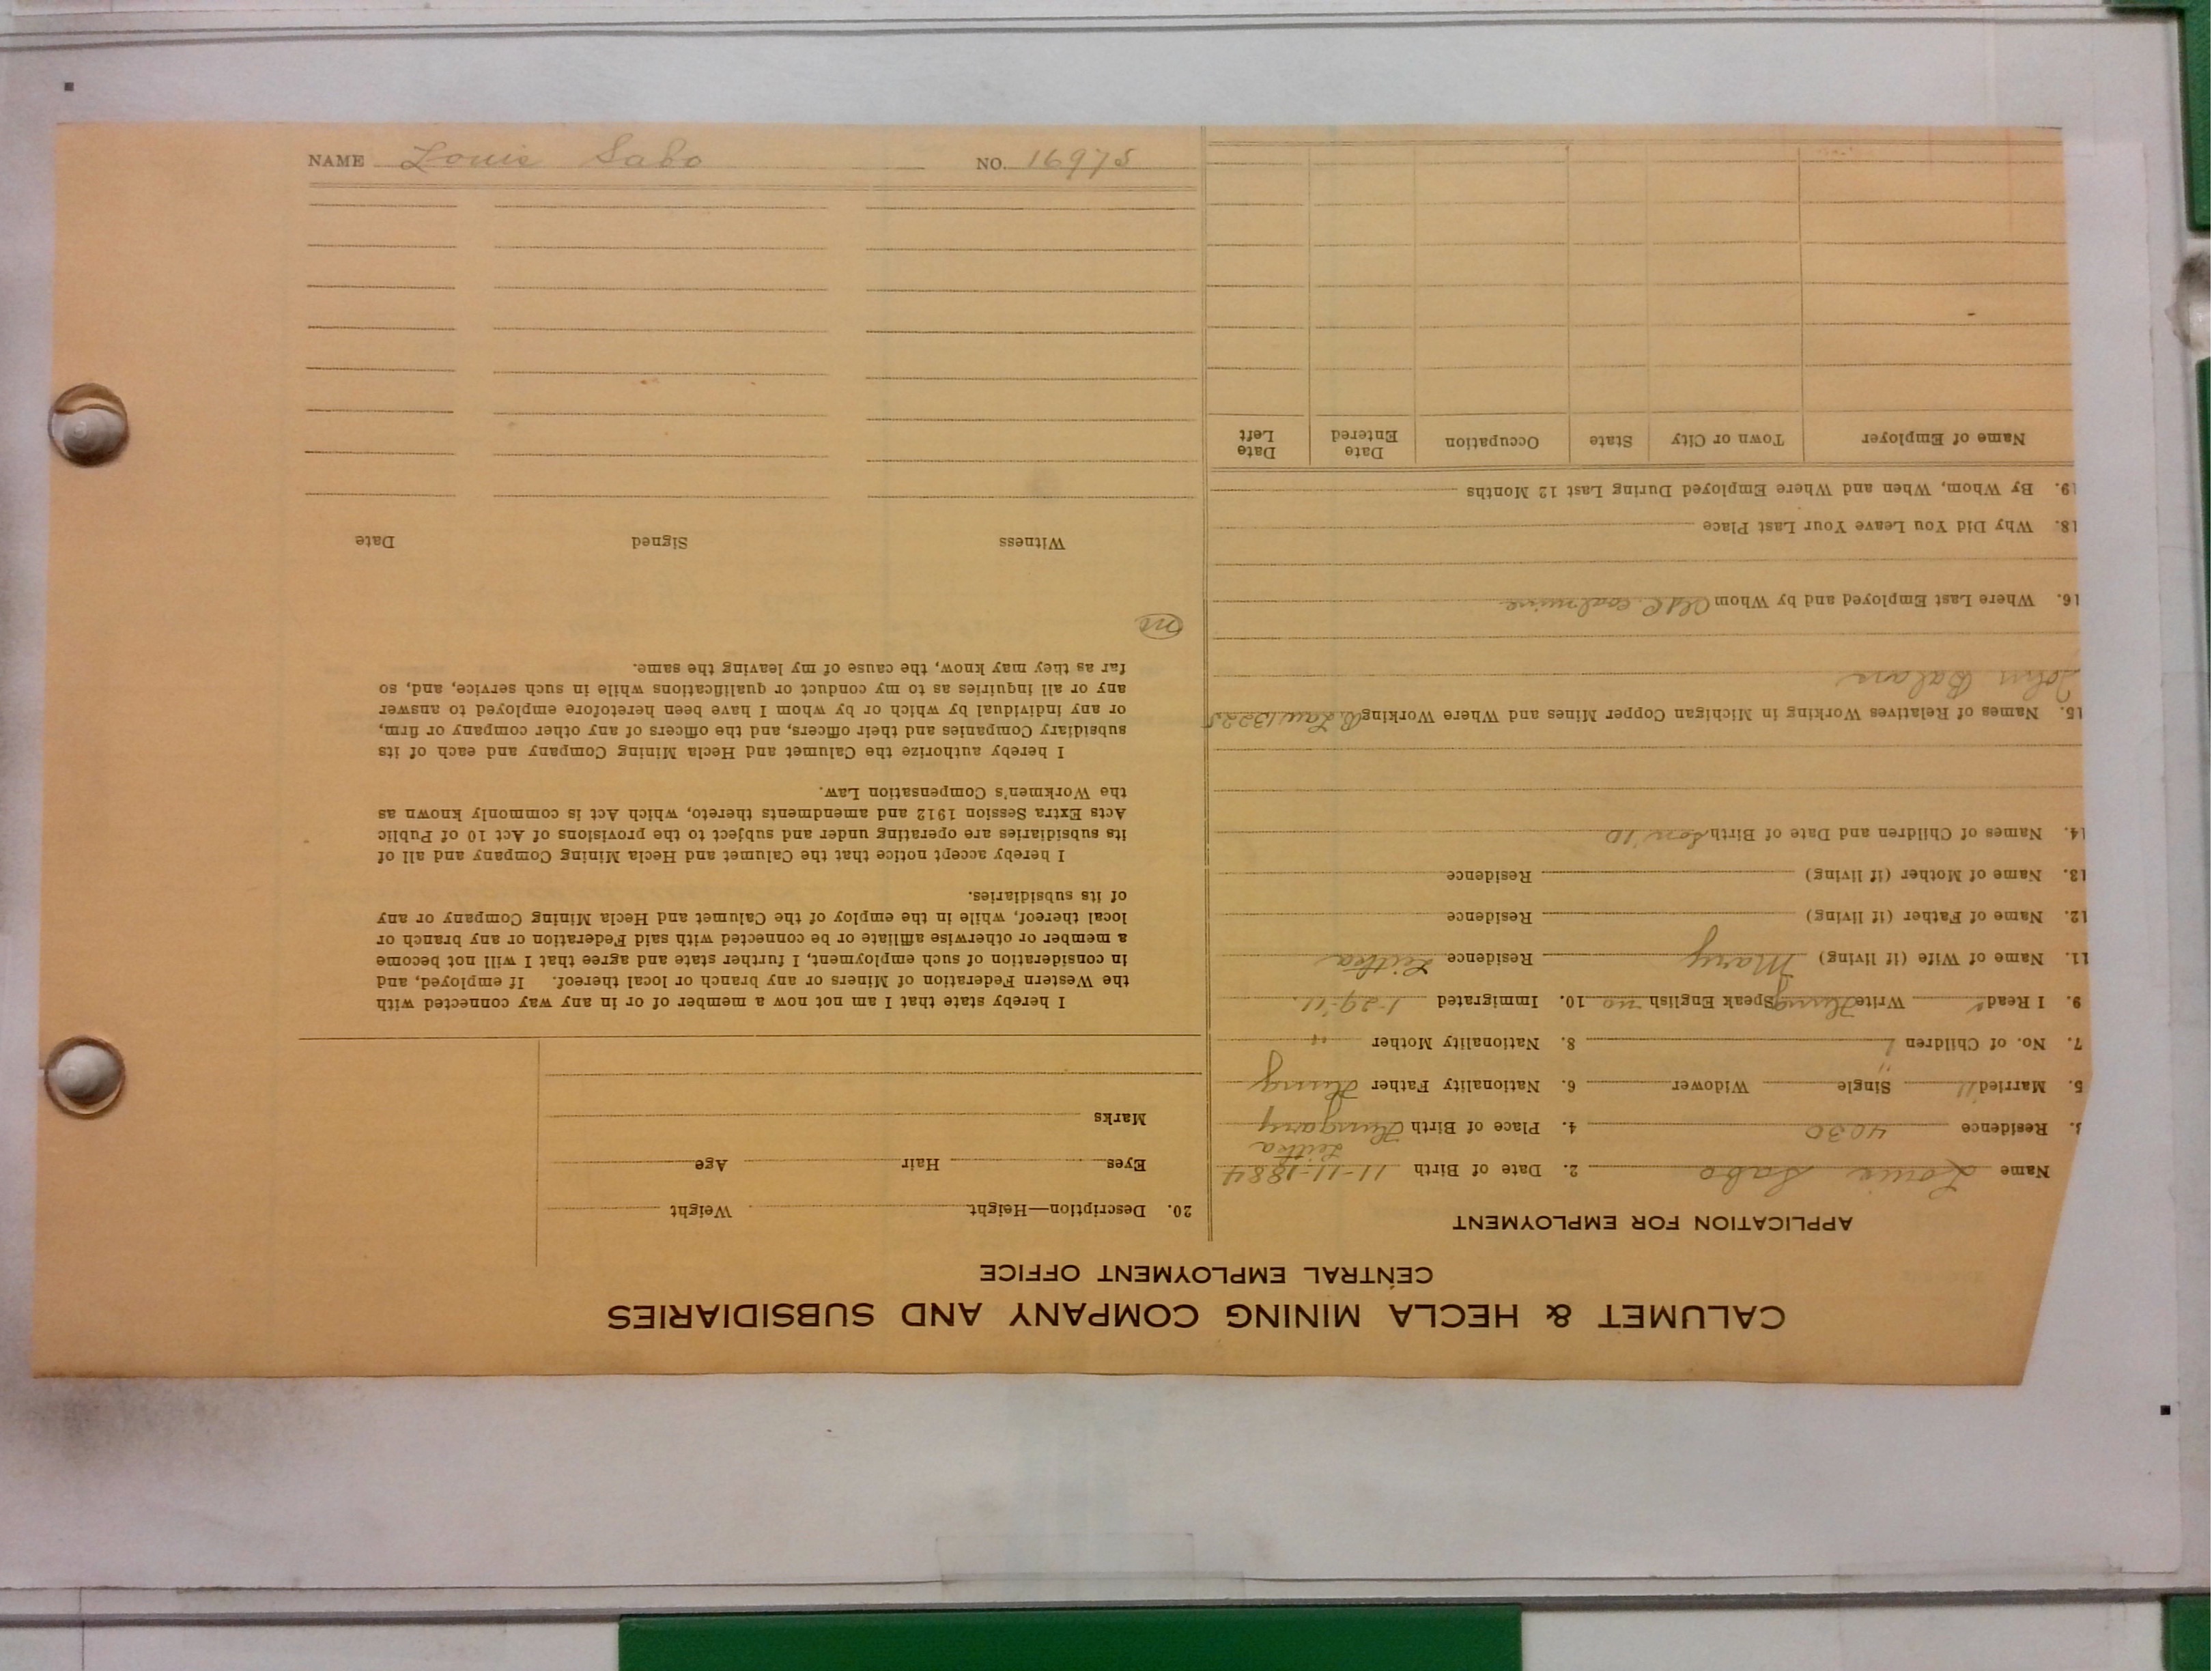 CALUMET & HECLA MINING COMPANY AND SUBSIDIARIES
CENTRAL EMPLOYMENT OFFICE
APPLICATION FOR EMPLOYMENT
Name Louis Sabo 2. Date of Birth 11-11-1884
Leitka
3. Residence 4030 4. Place of Birth Hungary
5. Married 11 Single Widower 6. Nationality Father Hung
7. No. of Children 1 8. Nationality Mother "
9. I Read " Write Hung Speak English no 10. Immigrated 1-29-11.
11. Name of Wife (if living) Mary Residence Leitka
12. Name of Father (if living) Residence
13. Name of Mother (if living) Residence
14. Names of Children and Date of Birth Son 10
15. Names of Relatives Working in Michigan Copper Mines and Where Working B. Law 13225
John Balans
16. Where Last Employed and by Whom coalmine
18. Why Did You Leave Your Last Place
19. By Whom, When and Where Employed During Last 12 Months
Name of Employer Town or City State Occupation Date Entered Date Left
20. Description—Height Weight
Eyes Hair Age
Marks
I hereby state that I am not now a member of or in any way connected with
the Western Federation of Miners or any branch or local thereof. If employed, and
in consideration of such employment, I further state and agree that I will not become
a member or otherwise affiliate or be connected with said Federation or any branch or
local thereof, while in the employ of the Calumet and Hecla Mining Company or any
of its subsidiaries.
I hereby accept notice that the Calumet and Hecla Mining Company and all of
its subsidiaries are operating under and subject to the provisions of Act 10 of Public
Acts Extra Session 1912 and amendments thereto, which Act is commonly known as
the Workmen's Compensation Law.
I hereby authorize the Calumet and Hecla Mining Company and each of its
subsidiary Companies and their officers, and the officers of any other company or firm,
or any individual by which or by whom I have been heretofore employed to answer
any or all inquiries as to my conduct or qualifications while in such service, and, so
far as they may know, the cause of my leaving the same.
Witness Signed Date
NAME Louis Sabo NO. 16975